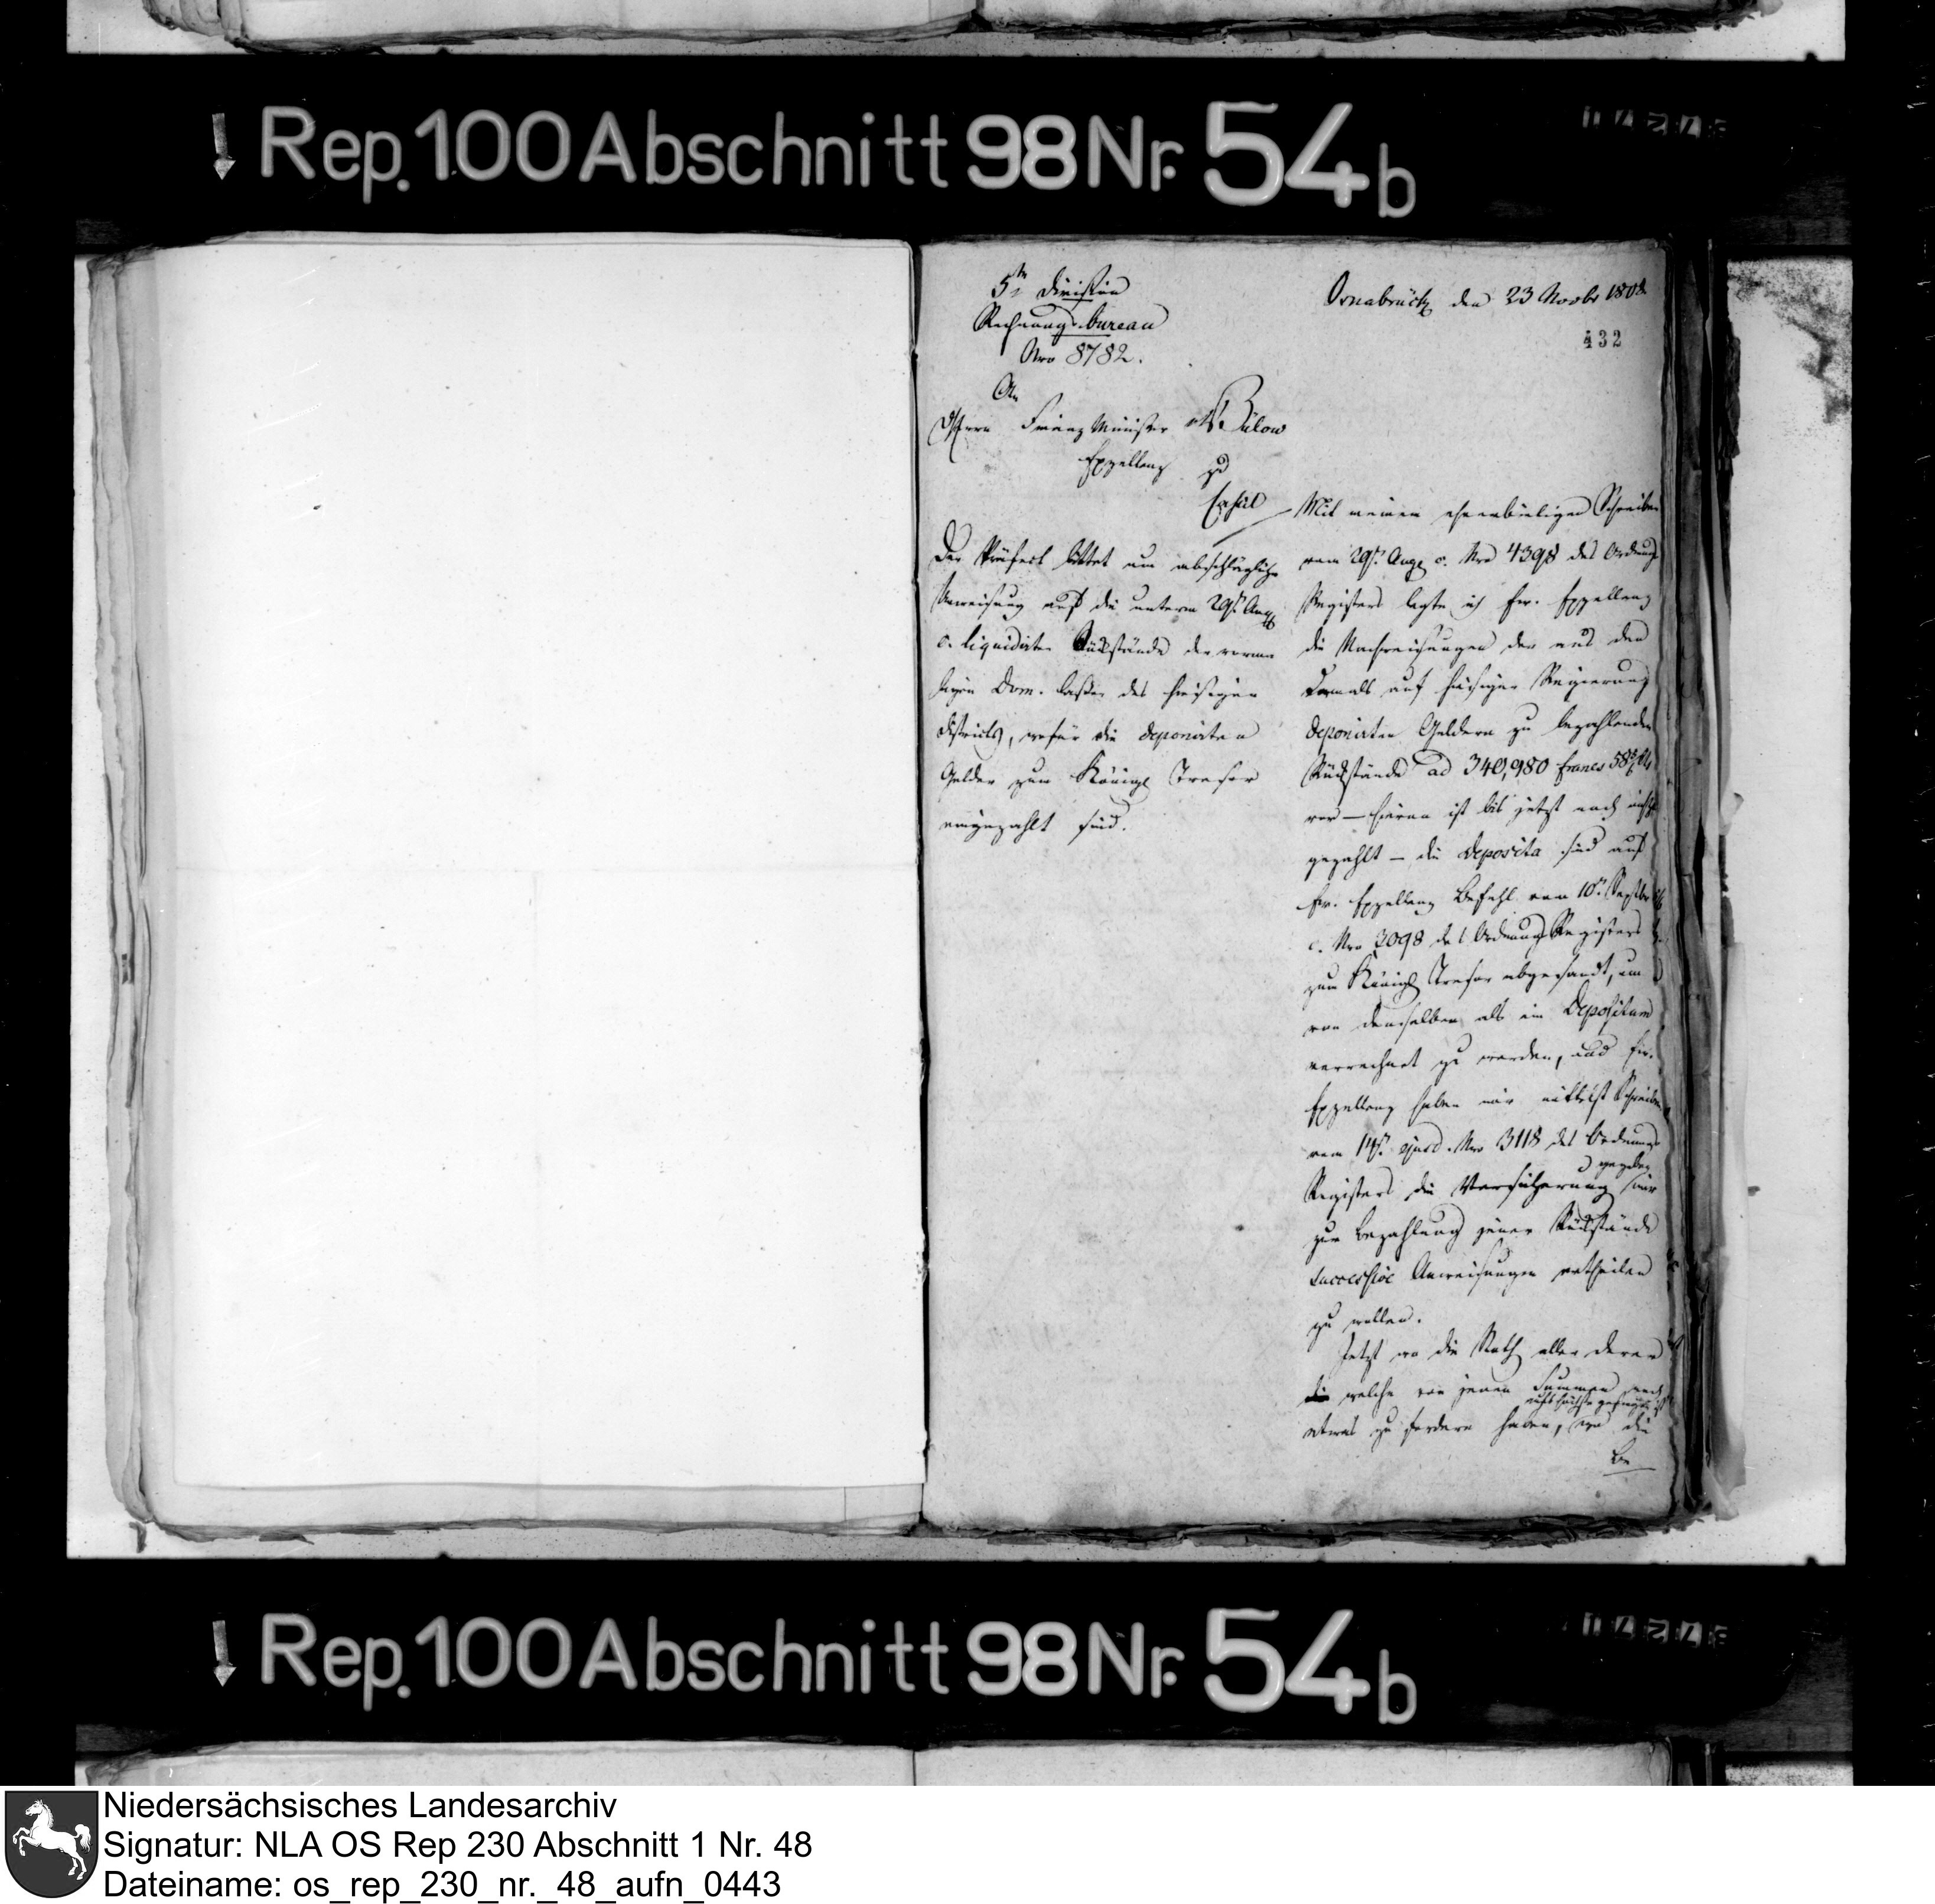 Rep. 100 Abschnitt 98 Nr. 54b
5te Division
Rechnungs bureau
Nro 8782.
Osnabrück den 23 Novbr 1808
432
An
Herrn Finanz Minister v. Bülow
Excellenz zu
Cassel
Der Präfect bittet um abschlägliche
Anweisung auf die unterm 29st. Aug
c. liquidirten Rückstände der vorma
ligen Dom. Cassen des hiesigen
Districts, wofür die deponirten
Gelder zum Königl Tresor
eingezahlt sind.
Mit meinem ehrerbietigen Schreiben
vom 29st. Aug c. Nro 4398 des Ordnungs
Registers legte ich Ew. Excellenz
die Nachweisungen der aus den
damals auf hiesiger Regierung
deponirten Geldern zu bezahlenden
Rückstände ad 340,980 francs
vor — hierin ist bis jetzt noch nichts
gezahlt — die Deposita sind auf
Ew. Excellenz Befehl vom 10n. Septbr
c. Nro 3098 des Ordnungs Registers
zum Königl Tresor abgesandt, um
von demselben als ein Depositum
verrechnet zu werden, und Ew.
Excellenz haben mir mittelst Schreiben
vom 14n. ejusd. Nro 3118 des Ordnungs
Registers die Versicherung gegeben, mir
zur Bezahlung jener Rückstände
successive Anweisungen ertheilen
zu wollen.
Jetzt wo die Noth aller derer
die welche von jenen Summen noch
etwas zu fordern haben, aufs höchste gestiegen ist, wo die
Be
Rep. 100 Abschnitt 98 Nr. 54b
Niedersächsisches Landesarchiv
Signatur: NLA OS Rep 230 Abschnitt 1 Nr. 48
Dateiname: os_rep_230_nr._48_aufn_0443